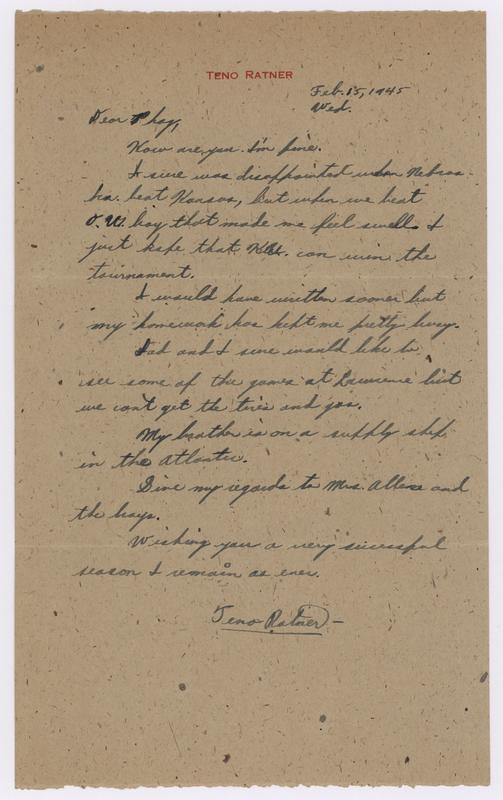 TENO RATNER
Feb. 15, 1945
Wed.
Dear Phog,
How are you. I'm fine.
I sure was disappointed when Nebras-
ka. beat Kansas, but when we beat
O.U. boy that made me feel swell. I
just hope that K.U. can win the
tournament.
I would have written sooner but
my homework has kept me pretty busy.
Dad and I sure would like to
see some of the games at Lawrence but
we can't get the tires and gas.
My brother is on a supply ship
in the Atlantic.
Give my regards to Mrs. Allen and
the boys.
Wishing you a very sucessful
season I remain as ever.
Teno Ratner-